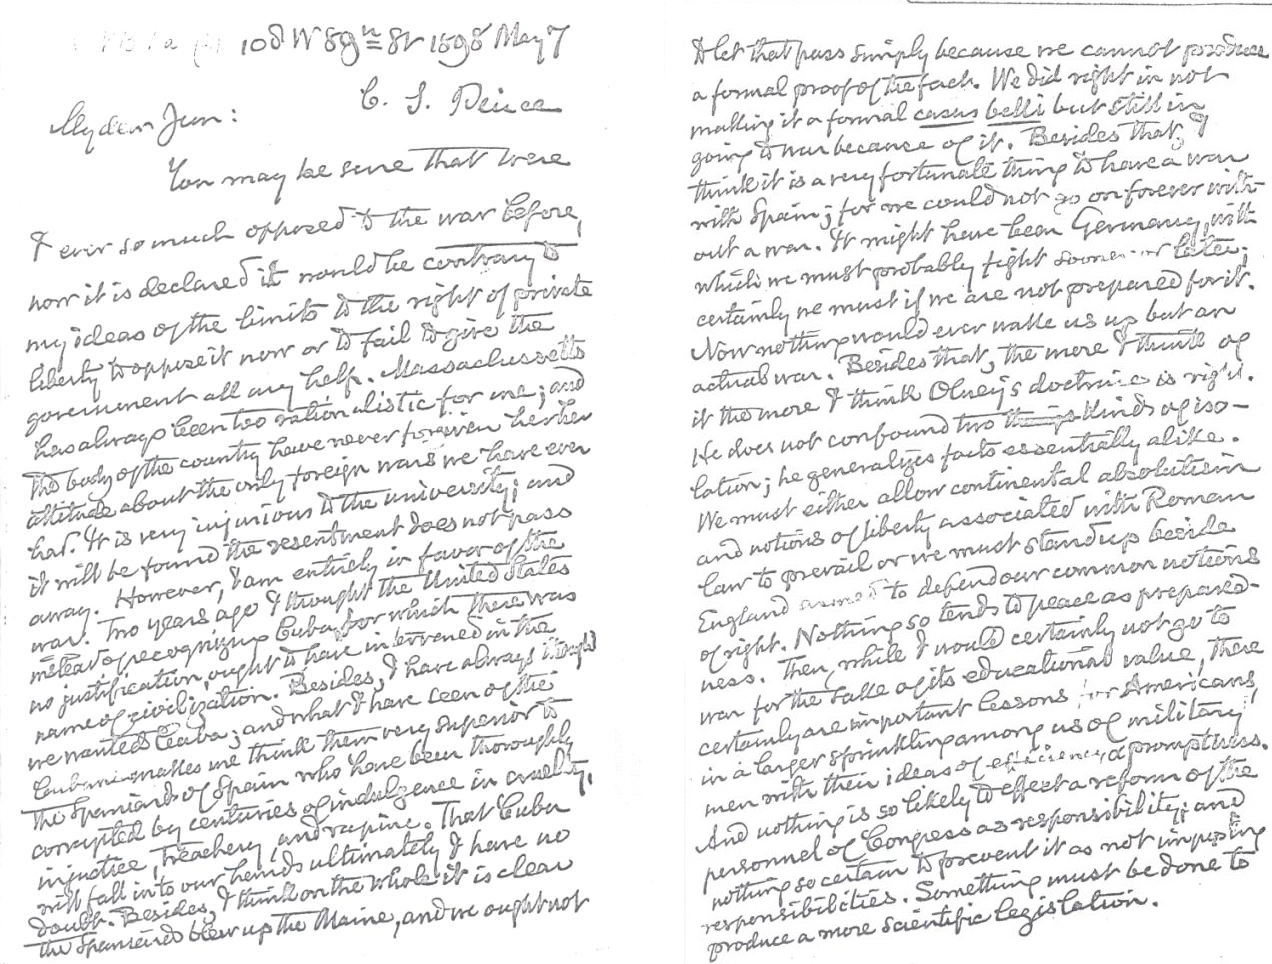 108 W 89th St 1898 May 7
C. S. Peirce
My dear Jem:
You may be sure that were
I ever so much opposed to the war before,
now it is declared it would be contrary to
my ideas of the limits to the right of private
liberty to oppose it now or to fail to give the
government all my help. Massachusetts
has always been too rationalistic for me; and
the body of the country have never forgiven her her
attitude about the only foreign wars we have ever
had. It is very injurious to the university; and
it will be found the resentment does not pass
away. However, I am entirely in favor of the
war. Two years ago I thought the United States
instead of recognizing Cuba, for which there was
no justification, ought to have intervened in the
name of civilization. Besides, I have always thought
we wanted Cuba; and what I have seen of the
Cubans makes me think them very superior to
the Spaniards of Spain who have been thoroughly
corrupted by centuries of indulgence in cruelty,
injustice, treachery, and rapine. That Cuba
will fall into our hands ultimately I have no
doubt. Besides, I think on the whole it is clear
the Spaniards blew up the Maine, and we ought not
to let that pass simply because we cannot produce
a formal proof of the fact. We did right in not
making it a formal casus belli but still in
going to war because of it. Besides that, I
think it is a very fortunate thing to have a war
with Spain; for we could not go on forever with-
out a war. It might have been Germany, with
which we must probably fight sooner or later;
certainly we must if we are not prepared for it.
Now nothing would ever wake us up but an
actual war. Besides that, the more I think of
it the more I think Olney's doctrine is right.
He does not confound two things kinds of iso-
lation; he generalizes facts essentially alike.
We must either allow continental absolutism
and notions of liberty associated with Roman
law to prevail or we must stand up beside
England armed to defend our common notions
of right. Nothing so tends to peace as prepared-
ness. Then, while I would certainly not go to
war for the sake of its educational value, there
certainly are important lessons for Americans,
in a larger sprinkling among us of military
men with their ideas of efficiency & promptness.
And nothing is so likely to effect a reform of the
personnel of Congress as responsibility; and
nothing so certain to prevent it as not imposing
responsibilities. Something must be done to
produce a more scientific legislation.